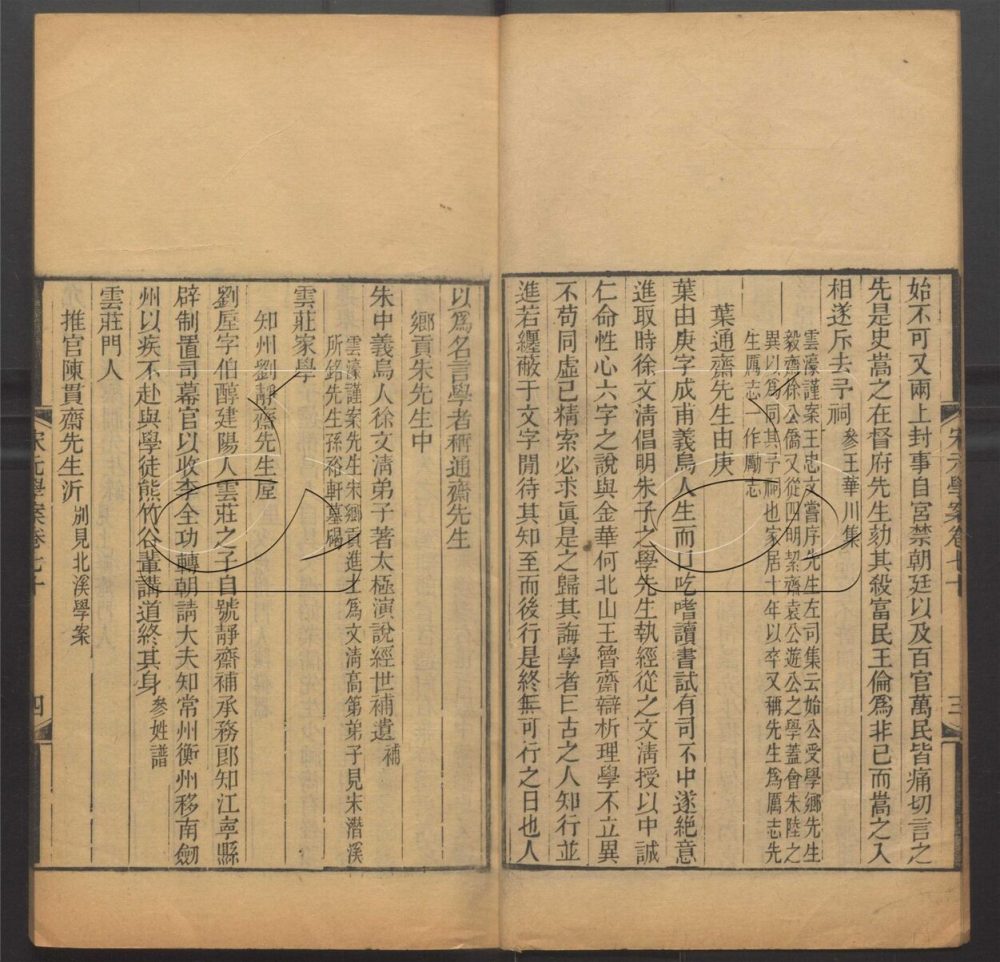 始不可又兩上封事自宮禁朝廷以及百官萬民皆痛切言之
先是史嵩之在督府先生劾其殺富民王倫爲非已而嵩之入
相遂斥去予祠參王華川集
雲濠謹案王忠文嘗序先生左司集云始公受學鄉先生
毅齋徐公僑又從四明絜齋袁公遊公之學蓋會朱陸之
異以爲同其予祠也家居十年以卒又稱先生爲厲志先
生厲志一作勵志
葉通齋先生由庚
葉由庚字成甫義烏人生而口吃嗜讀書試有司不中遂絕意
進取時徐文淸倡明朱子之學先生執經從之文淸授以中誠
仁命性心六字之說與金華何北山王魯齋辯析理學不立異
不苟同虛已精索必求眞是之歸其誨學者曰古之人知行並
進若纏蔽于文字閒待其知至而後行是終無可行之日也人
宋元學案卷七十
三
以爲名言學者稱通齋先生
鄉貢朱先生中
朱中義烏人徐文淸弟子著太極演說經世補遺補
雲濠謹案先生宋鄉貢進士爲文淸高第弟子見宋潛溪
所銘先生孫裕軒墓碣
雲莊家學
知州劉靜齋先生垕
劉垕字伯醇建陽人雲莊之子自號靜齋補承務郎知江寧縣
辟制置司幕官以收李全功轉朝請大夫知常州衡州移南劒
州以疾不赴與學徒熊竹谷輩講道終其身參姓譜
雲莊門人
推官陳貫齋先生沂別見北溪學案
宋元學案卷七十
四